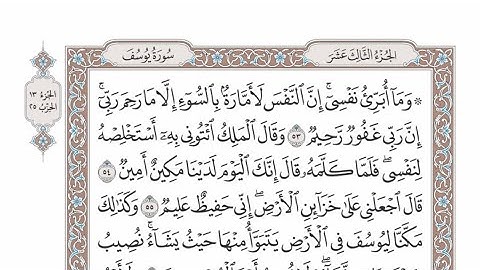 الجُزْءُ الثَّالِثَ عَشَرَ
سُورَةُ يُوسُفَ
الجُزْءُ ١٣
الحِزْبُ ٢٥
۞ وَمَآ أُبَرِّئُ نَفۡسِيٓۚ إِنَّ ٱلنَّفۡسَ لَأَمَّارَةُۢ بِٱلسُّوٓءِ إِلَّا مَا رَحِمَ رَبِّيٓۚ
إِنَّ رَبِّي غَفُورٞ رَّحِيمٞ ٥٣ وَقَالَ ٱلۡمَلِكُ ٱئۡتُونِي بِهِۦٓ أَسۡتَخۡلِصۡهُ
لِنَفۡسِيۖ فَلَمَّا كَلَّمَهُۥ قَالَ إِنَّكَ ٱلۡيَوۡمَ لَدَيۡنَا مَكِينٌ أَمِينٞ ٥٤
قَالَ ٱجۡعَلۡنِي عَلَىٰ خَزَآئِنِ ٱلۡأَرۡضِۖ إِنِّي حَفِيظٌ عَلِيمٞ ٥٥ وَكَذَٰلِكَ
مَكَّنَّا لِيُوسُفَ فِي ٱلۡأَرۡضِ يَتَبَوَّأُ مِنۡهَا حَيۡثُ يَشَآءُۚ نُصِيبُ